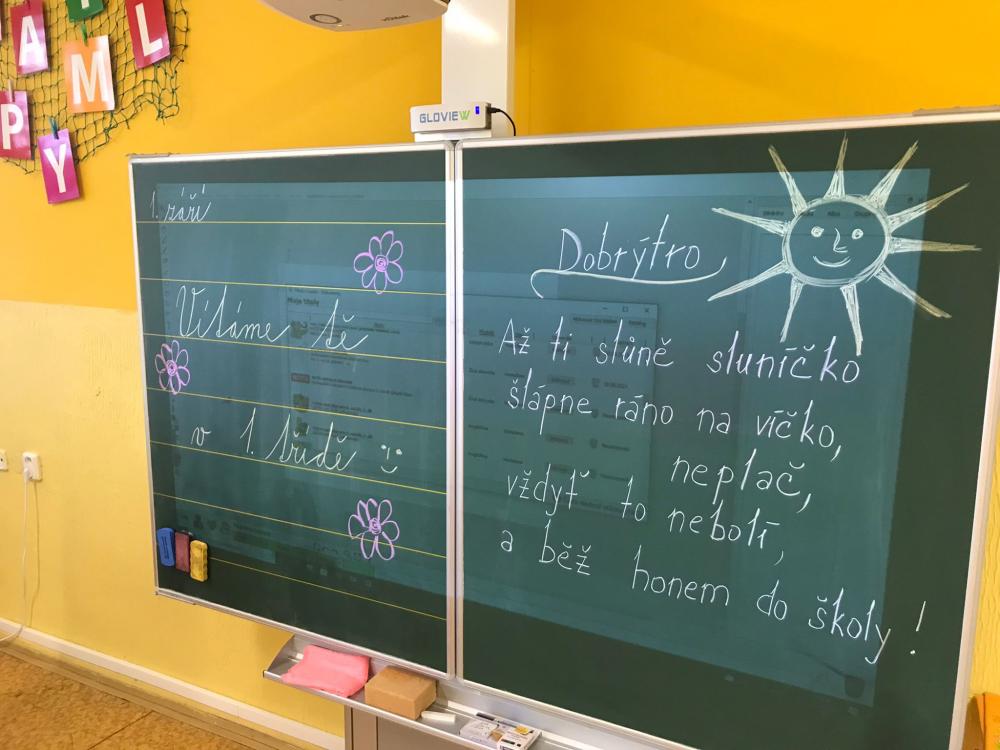 A M L
P Y
GLOVIEW
1. září
Vítáme tě
v 1. třídě
Dobrýtro
Až ti slůně sluníčko
šlápne ráno na víčko,
neplač,
vždyť to nebolí,
a běž honem do školy!
Moje třídy